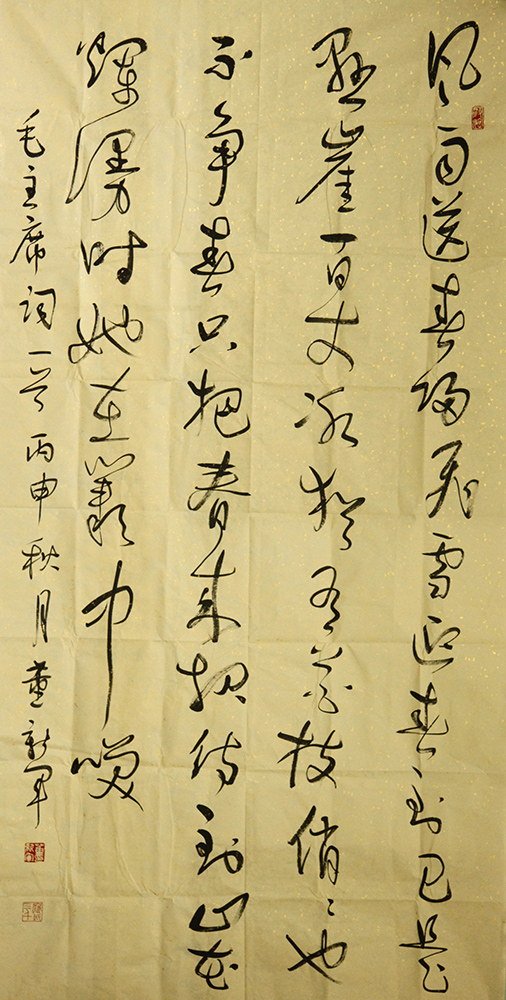 風雨送春歸飛雪迎春到已是
懸崖百丈冰猶有花枝俏俏也
不争春只把春来报待到山花
爛漫时她在叢中笑
毛主席词一首丙申秋月董新军